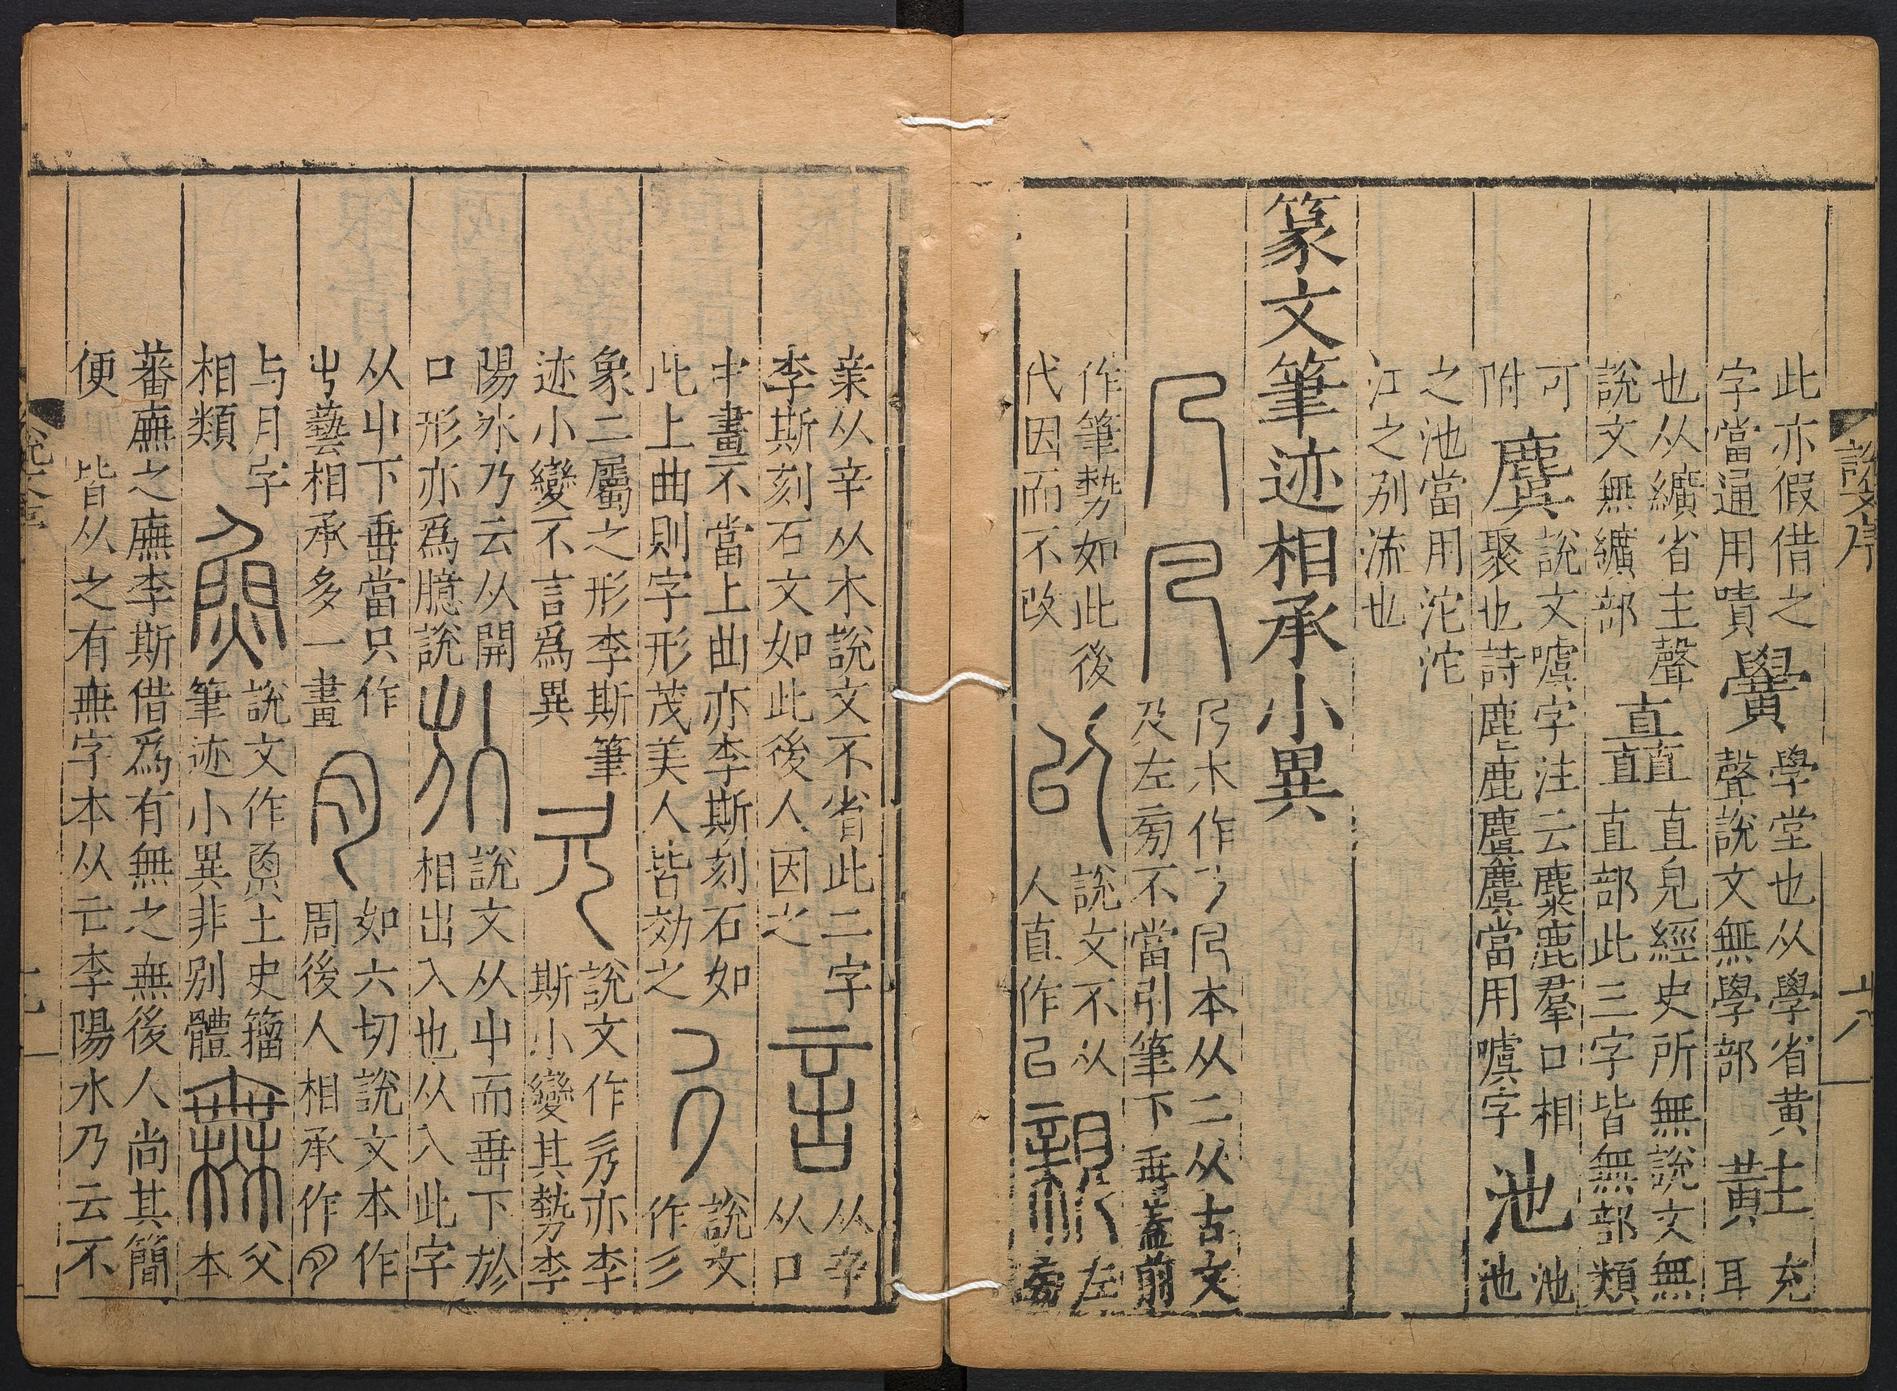 此亦假借之
字當通用嘖
黌
學堂也从學省黄
聲說文無學部
黊
充
耳
也从纊省主聲
說文無纊部
矗
直皃經史所無說文無
直部此三字皆無部類
可
附
麌
說文噳字注云麋鹿羣口相
聚也詩麀鹿麌麌當用噳字
池
池
池
之池當用沱沱
江之别流也
篆文筆迹相承小異
本从二从古文
及左㫄不當引筆下垂蓋前
作筆勢如此後
代因而不改
說文不从
人直作
左
㫄
亲从辛从木說文不省此二字
李斯刻石文如此後人因之
言
从辛
从口
中畫不當上曲亦李斯刻石如
此上曲則字形茂美人皆効之
說文
作
象二屬之形李斯筆
迹小變不言爲異
說文作
亦李
斯小變其勢李
陽冰乃云从開
口形亦爲臆說
說文从屮而垂下於
相出入也从入此字
从屮下垂當只作
屮蓺相承多一畫
如六切說文本作
周後人相承作
与月字
相類
說文作𤋳土史籀
筆迹小異非别體
父
本
蕃廡之廡李斯借爲有無之無後人尚其簡
便
皆从之有無字本从亡李陽冰乃云不
說文序
六